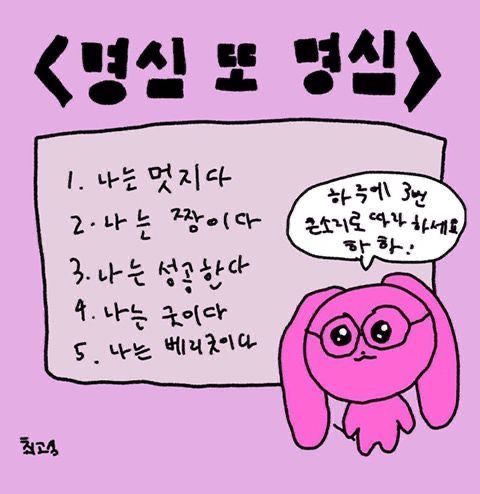 <명심 또 명심>
1. 나는 멋지다
2. 나는 짱이다
3. 나는 성공한다
4. 나는 굿이다
5. 나는 베리굿이다
하루에 3번
큰소리로 따라 하세요
하하!
최고심